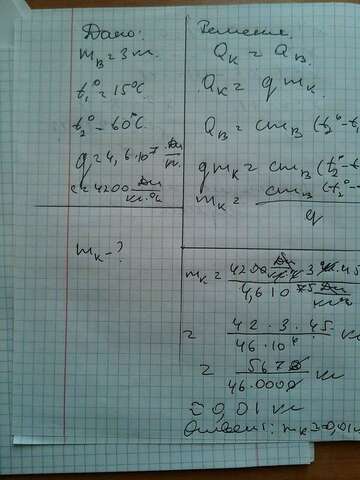 Дано:
m_в = 3 кг.
t₁° = 15°C
t₂° - 60°C
q = 4,6·10⁷ Дж/кг.
c = 4200 Дж/кг·°C
m_к - ?
Решение.
Q_к = Q_в.
Q_к = q m_к.
Q_в = cm_в (t₂° - t₁
q m_к = cm_в (t₂° - t
m_к = cm_в (t₂° - / q
m_к = 4200 · 3 кг · 45 / 4,6 · 10
= 42 · 3 · 45 / 46 · 10⁴ кг
= 5670 / 46.0000 кг
≈ 0,01 кг
Ответ: m_к ≈ 0,01 к